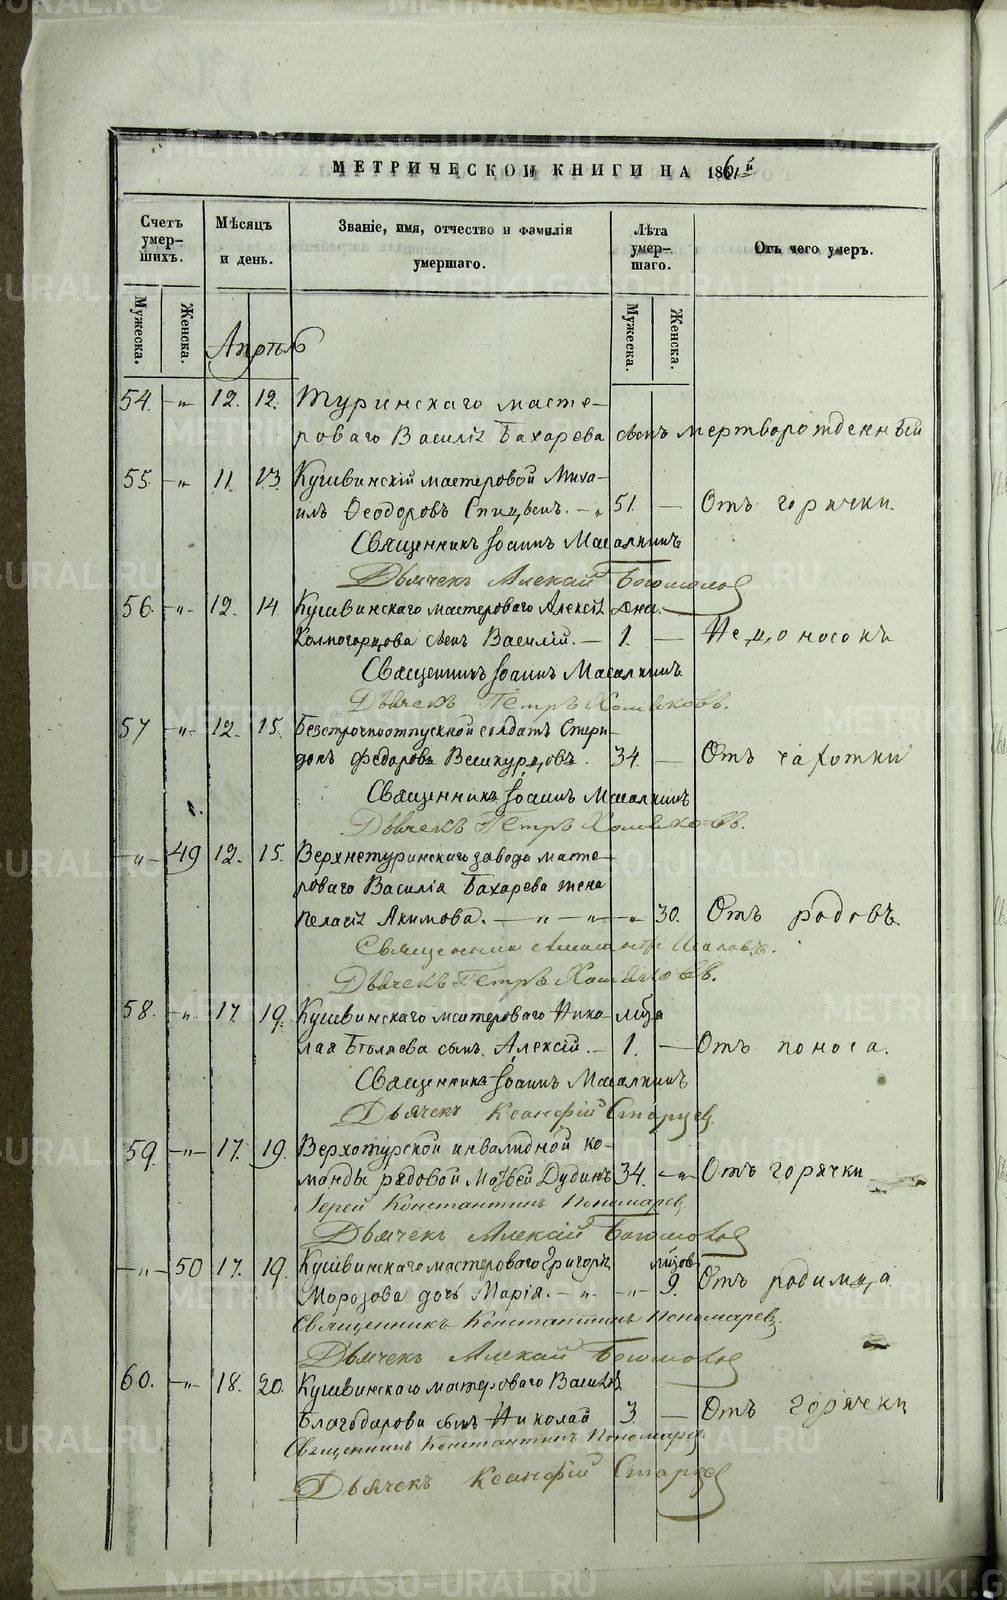 МЕТРИЧЕСКОЙ КНИГИ НА 1861й
Счетъ умер-шихъ.
Мѣсяцъ и день.
Званіе, имя, отчество и фамилія умершаго.
Лѣта умер-шаго.
Отъ чего умеръ.
Мужеска.
Женска.
Мужеска.
Женска.
Апрѣль
54. -"- 12. 12. Туринскаго масте-
роваго Василія Бахарева сынъ мертворожденный
55. -"- 11. 13. Кушвинскій мастеровой Миха-
илъ Ѳеодоровъ Спицынъ. -"- 51. — Отъ горячки.
Священникъ Іоаннъ Масалкинъ
Дьячекъ Алексій Богомолов
56. -"- 12. 14. Кушвинскаго мастероваго Алексія дня.
Колмогорцова сынъ Василій. — 1. — Недоносокъ
Священникъ Іоаннъ Масалкинъ.
Дьячекъ Петръ Хомяковъ.
57 -"- 12. 15. Безсрочноотпускной солдатъ Спири-
донъ Федоровъ 34. — Отъ чахотки
Священникъ Іоаннъ Масалкинъ
Дьячекъ Петръ Хомяковъ.
-"- 49 12. 15. Верхнетуринскаго завода масте-
роваго Василія Бахарева жена
Пелагія Акимова. — " — " — " 30. Отъ родовъ.
Священникъ
Дьячекъ Петръ Хомяковъ.
58. -"- 17. 19. Кушвинскаго мастероваго Нико- мѣсяца
лая Бѣляева сынъ Алексій. — 1. — Отъ поноса.
Священникъ Іоаннъ Масалкинъ
Дьячекъ Ксанфій Старцев
59. -"- 17. 19. Верхотурской инвалидной ко-
манды рядовой Матвей Дудинъ 34. -"- Отъ горячки
Іерей Константинъ Пономарев
Дьячекъ Алексій Богомолов
-"- 50 17. 19. Кушвинскаго мастероваго Григорія
Морозова дочь Марія. -"- -"- 9. Отъ родимца
Священникъ Константинъ Пономарев.
Дьячекъ Алексій Богомолов
60. -"- 18. 20. Кушвинскаго мастероваго Василія
Благодарова сынъ Николай 3. — Отъ горячки
Священникъ Константинъ Пономарев.
Дьячекъ Ксанфій Старцев
METRIKI.GASO-URAL.RU